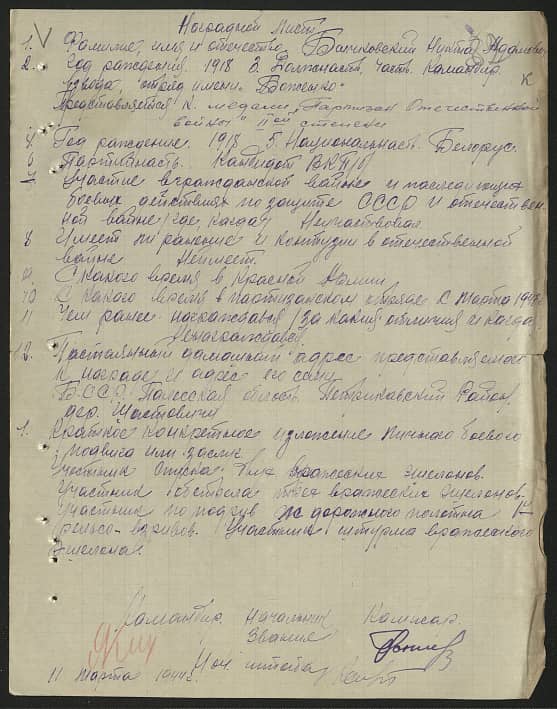 Наградной Листъ
1. Фамилия, имя и отчество Никита Адамович
2. Год рождения 1918 3. Должность, часть Командир
взвода, отряд имени Боженко
Представляется к медали "Партизан Отечественной
войны" II ой степени
4 Год рождение 1918 5. Национальность. Белорус.
6 Партийность. Кандидат ВКП/б
7 Участие в гражданской войне и последующих
боевых действиях по защите СССР и отечествен-
ной войне (где, когда) Неучаствовал
8 Имеет ли ранение и контузии в отечественной
войне Неимеет.
9. С какого время в Красной Армии
10 С какого время в партизанском с Марта
11 Чем ранее награждался (за какие отличия и когда)
Ненаграждался.
12. Постаянный домашний адрес представляемого
к награде и адрес его семи
Б.С.С.Р. Полесская область Петриковский Район,
дер.
1. Краткое конкретное изложение личного боевого
подвига или заслуг
Участник спуска вражеских эшелонов.
Участник обстрела вражеских эшелонов.
Участник по подрыв ж дорожного полотна
рельсо-взривов. Участник штурма вражеского
эшелона.
Командир Начальник Комисар.
Звание
Нач. штаба
11 Марта